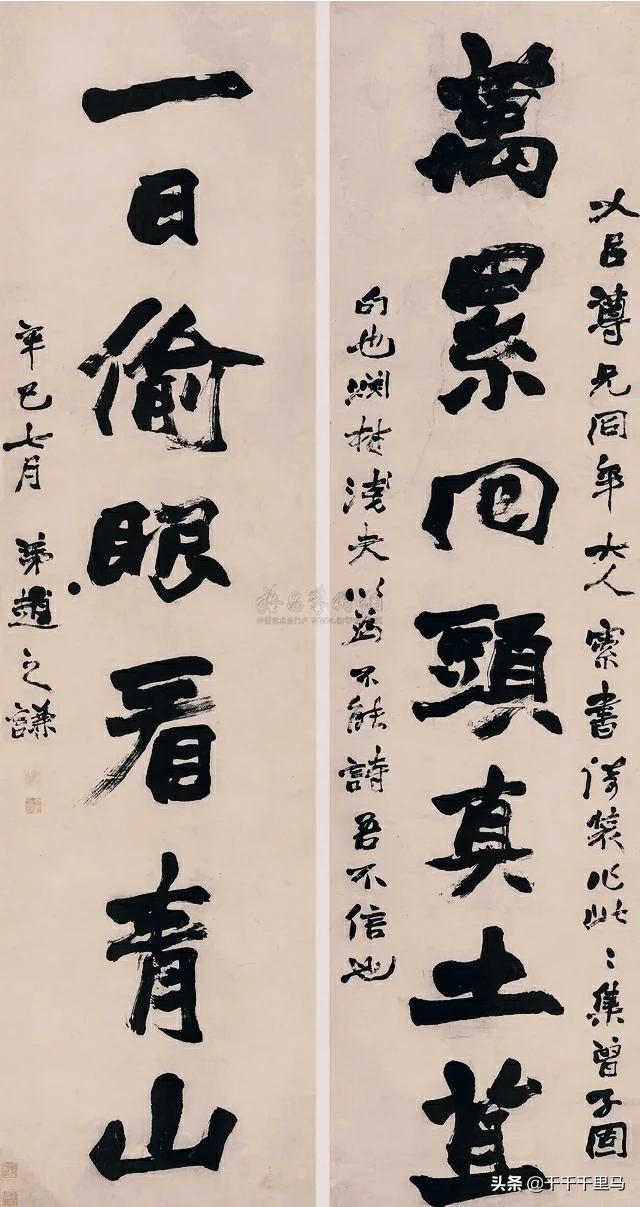 萬累回頭真土苴
呂尊兄同年大人索書倚裝作此〻集曾子固
句也淵材淺夫以為不能詩吾不信也
一日偷眼看青山
辛巳七月 弟趙之謙
头条 @千千千里马